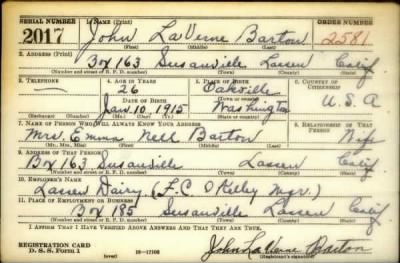 SERIAL NUMBER 1. NAME (Print) ORDER NUMBER
2017 John LaVerne Barton 2581
(First) (Middle) (Last)
2. ADDRESS (Print)
Box 163 Susanville Lassen Calif
(Number and street or R. F. D. number) (Town) (County) (State)
3. TELEPHONE 4. AGE IN YEARS 5. PLACE OF BIRTH 6. COUNTRY OF CITIZENSHIP
26 Oakville
DATE OF BIRTH (Town or county)
Jan 10, 1915 Washington U.S.A
(Exchange) (Number) (Mo.) (Day) (Yr.) (State or country)
7. NAME OF PERSON WHO WILL ALWAYS KNOW YOUR ADDRESS 8. RELATIONSHIP OF THAT PERSON
Mrs. Emma Nell Barton Wife
(Mr., Mrs., Miss) (First) (Middle) (Last)
9. ADDRESS OF THAT PERSON
Box 163 Susanville Lassen Calif
(Number and street or R. F. D. number) (Town) (County) (State)
10. EMPLOYER'S NAME
Lassen Dairy (F.C. O'Kelley Mgr.)
11. PLACE OF EMPLOYMENT OR BUSINESS
Box 185 Susanville Lassen Calif
(Number and street or R. F. D. number) (Town) (County) (State)
I AFFIRM THAT I HAVE VERIFIED ABOVE ANSWERS AND THAT THEY ARE TRUE.
REGISTRATION CARD
D. S. S. Form 1 (over) 16-17105 John LaVerne Barton
(Registrant's signature)